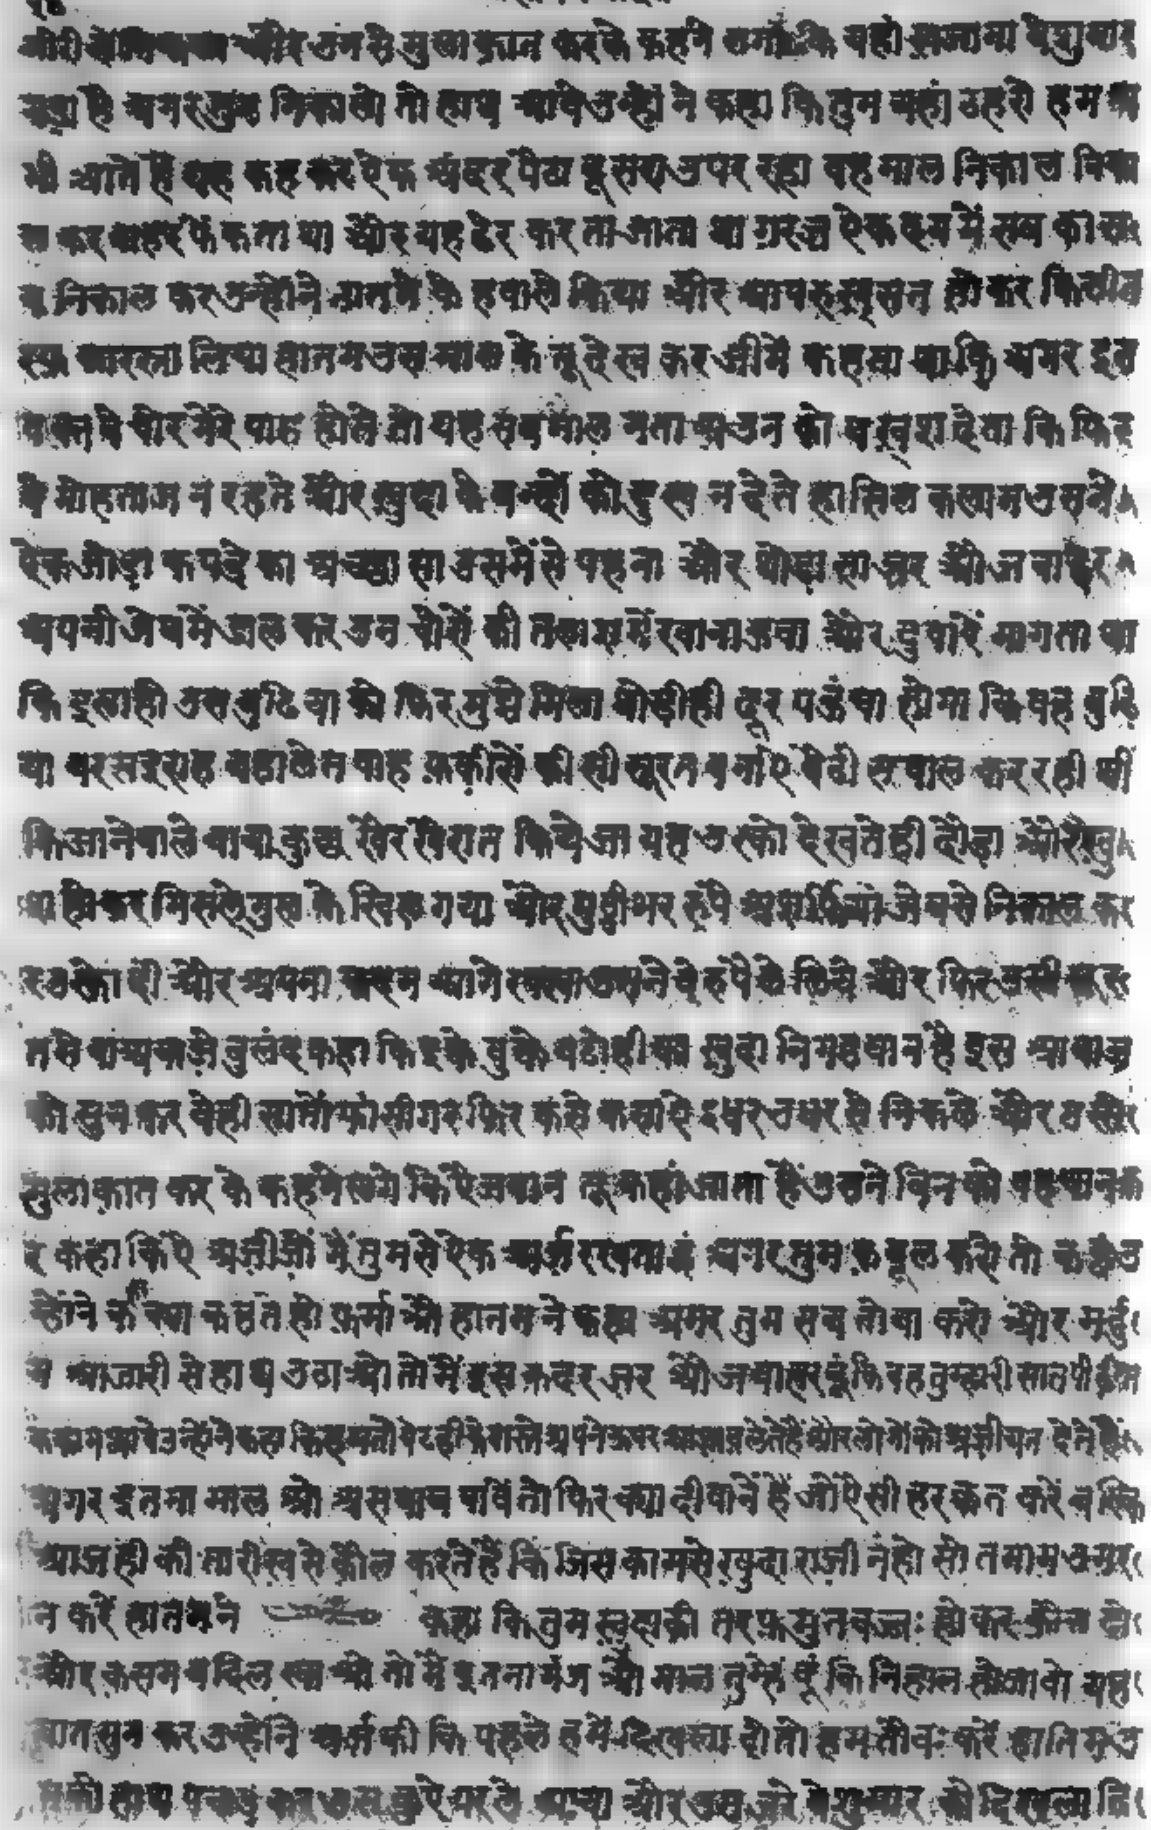 और उनसे मुलाकात करके कहने लगा कि यहां खजाना बेशुमार
है अगर तुम निकालो तो हाथ आवे उन्हों ने कहा कि तुम यहां ठहरो हम अ
भी आते हैं यह कह कर ऐक अंदर पैठा दूसरा उपर रहा वह माल निकाल निका
ल कर बाहर फेंकता था और यह ढेर करता जाता था गरज ऐक दम में सब का स
ब निकाल कर उन्होंने हातम के हवाले किया और आप रुख़सत होकर
रस्ता लिया हातम उस माल के तूदे देख कर जी में कहता था कि अगर इस
वक्त वे चोर मेरे पास होते तो यह सब माल मता उन को बख़्श देता कि फिर
वे मोहताज न रहते और ख़ुदा के बन्दों को दुख न देते हासिल कलाम उसने
ऐक जोड़ा कपड़े का अच्छा सा उसमें से पहना और थोड़ा सा ज़र औ जवाहर
अपनी जेब में डाल कर उन चोरों की तलाश में रवाना हुवा और दुवायें मागता था
कि इलाही उस बुढिया को फिर मुझे मिला थोड़ी ही दूर पहुंचा होगा कि वह बुढि
या बरसरे राह बहालेत बाह फ़कीरों की सी सूरत बनाऐ बैठी सवाल कर रही थी
कि जाने वाले बाबा कुछ खैर खैरात किये जा यह उस्को देखते ही दौड़ा और ख़ु
श होकर मिसले गुल के खिल गया और मुट्ठी भर रुपै अशर्फियां जेब से निकाल कर
उस्को दीं और अपना कदम आगे रक्खा उसने वे रुपै ले लिये और फिर उसी सूर
त से बा आवाज़े बुलंद कहा कि इक्के दुक्के बटोही का ख़ुदा निगहबान है इस आवाज़
को सुन कर वेही सातों फांसीगर फिर कसे कसाऐ इधर उधर से निकले और उस्से
मुलाकात कर के कहने लगे कि ऐ जवान तू कहां जाता है उसने विन को पहचान क
र कहा कि ऐ अजीजों में तुमसे ऐक अर्ज रखता हूं अगर तुम कबूल करो तो कहूं उ
न्होंने क॰ क्या कहते हो फ़र्माओ हातम ने कहा अगर तुम सब तोबा करो और मर्दु
म आजारी से हाथ उठाओ तो मैं इस कदर ज़र औ जवाहर दूं कि वह तुम्हारी सात पीढ़ी त
क काम आवे उन्होंने कहा कि हम तौ पेट ही के वास्ते अपने ऊपर अज़ाब लेते हैं और लोगों को अज़ीयत देते हैं
अगर इतना माल औ असबाब पावें तो फिर क्या दीवाने हैं जो ऐसी हरकत करें बल्कि
आज ही की तारीख़ से कौल करते हैं कि जिस काम से ख़ुदा राजी न हो सो तमाम उमर
न करें हातम ने कहा कि तुम ख़ुदा की तरफ़ मुतवज्जः होकर कौल दो
और कसम बदिल खाओ तो मैं इतना गंज औ माल तुम्हें दूं कि निहाल हो जावो यह
बात सुन कर उन्होंने अर्ज की कि पहले हमें दिखला दो तो हम तौबः करें हातिम उ
नकी हाथ पकड़ कर उस कुऐ पर ले आया और उस ज़रे बेशुमार को दिखला दि